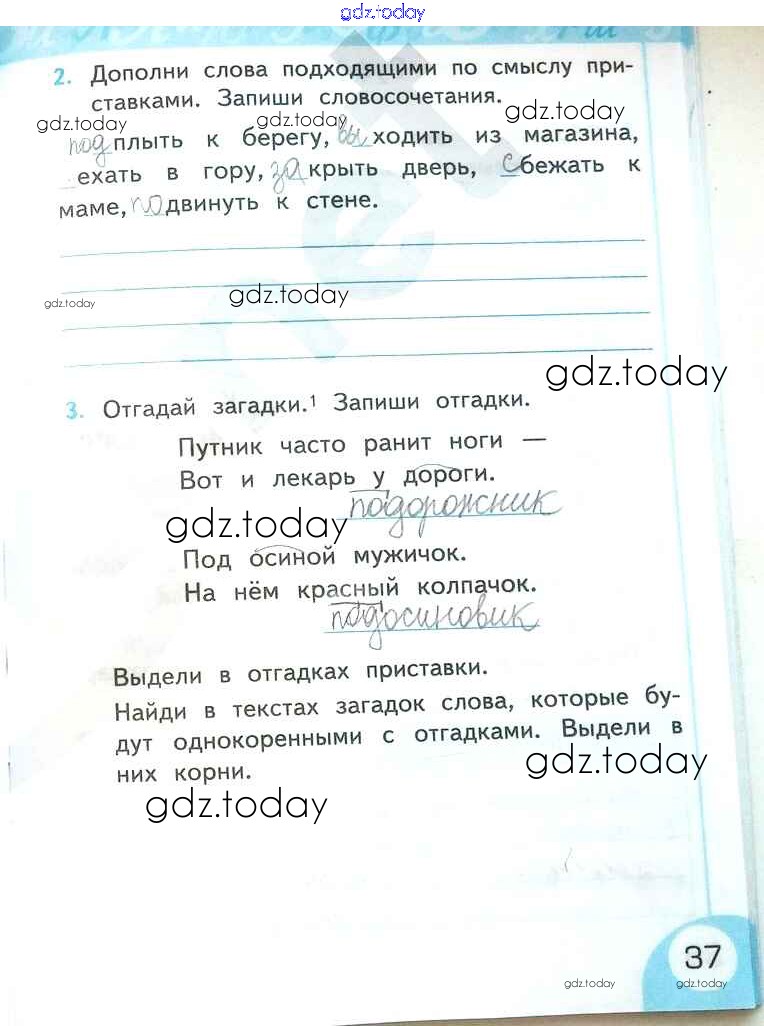 gdz.today
2. Дополни слова подходящими по смыслу при-
ставками. Запиши словосочетания.
gdz.today gdz.today gdz.today
подплыть к берегу, выходить из магазина,
_ехать в гору, закрыть дверь, сбежать к
маме, подвинуть к стене.
gdz.today gdz.today
gdz.today
3. Отгадай загадки.¹ Запиши отгадки.
Путник часто ранит ноги —
Вот и лекарь у дороги.
подорожник
gdz.today
Под осиной мужичок.
На нём красный колпачок.
подосиновик
Выдели в отгадках приставки.
Найди в текстах загадок слова, которые бу-
дут однокоренными с отгадками. Выдели в
них корни.
gdz.today
gdz.today
37
gdz.today gdz.today